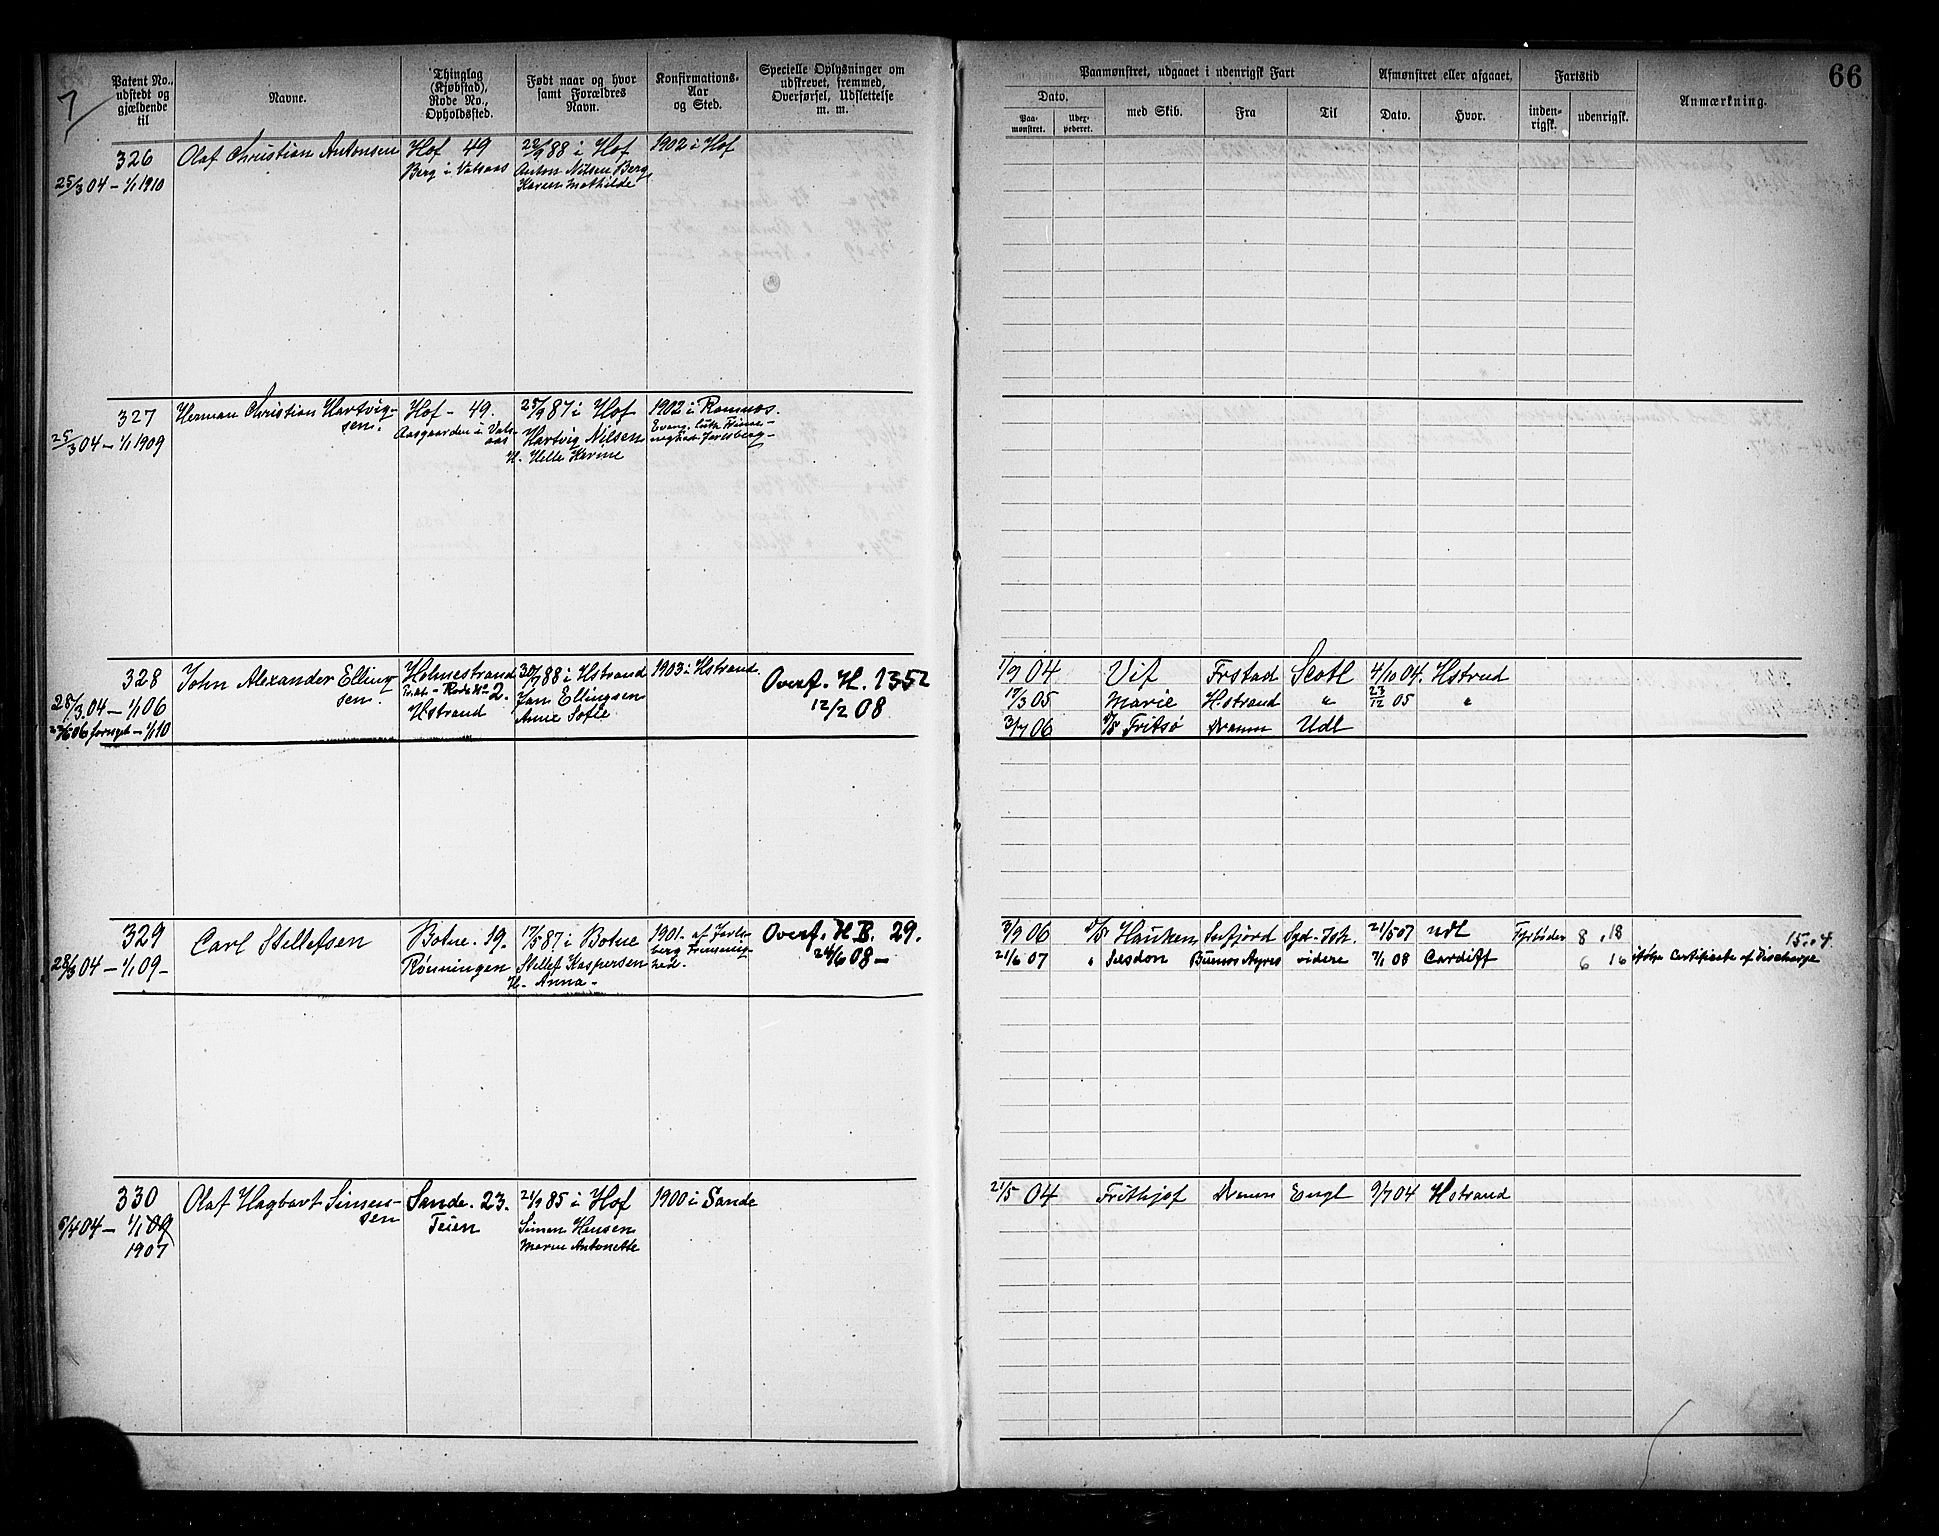 7
66
Patent No., udstedt og gjældende til
Navne.
Thinglag (Kjøbstad), Rode No., Opholdssted.
Født naar og hvor samt Forældres Navn.
Konfirmations-Aar og Sted.
Specielle Oplysninger om udskrevet, fremmed, Overførsel, Udslettelse m. m.
Paamønstret, udgaaet i udenrigsk Fart
Dato.
Paa-mønstret.
Uder-pederet.
med Skib.
Fra
Til
Afmønstret eller afgaaet,
Dato.
Hvor.
Fartstid
inden-rigsk.
udenrigsk.
Anmærkning.
326 Olaf Christian Antonsen Hof 49 22/9 88 i Hof 1902 i Hof
25/3 04 – 1/1 1910 Berg i Vasaas Anton Nilsen Berg
Karen Mathilde
327 Herman Christian Hartvig- Hof – 49. 25/9 87 i Hof 1902 i Ramnæs.
sen. Aasgaarden i Vas- Evang. Luth. Frime-
25/3 04 – 1/1 1909 aas Hartvig Nilsen nighed Jarlsberg –
H. Helle Karine
328 John Alexander Elling- Holmestrand 30/7 88 i Hstrand 1903 i Hstrand Overf. H. 1352 1/9 04 Vif Frstad Scotl 4/10 04. Hstrand
sen. Rode No 2. Jan Ellingsen 12/2 08 17/3 05 Marie H.strand " 23/12 05 "
28/3. 04 – 1/1 06 Hstrand Anne Sofie
06 fornyet – 1/1 10 3/7 06 D/S Fritsø Dramn Udl
329 Carl Stellefsen Botne. 19. 17/5 87 i Botne 1901. af Jarls- Overf. H B. 29. 3/9 06 D/S Hauken Syd- 21/5 07 Udl Fyrbøder 8 . 18 15.04.
28/3 04 – 1/1 09 – Rønningen Stellef Kaspersen berg Frimenig- 24/6 08 – 21/6 07 " Selsdon Buenos Ayres videre 7/1 08 Cardiff 6 16 ifølge Certificate of Discharge
hed.
H. Anna –
330 Olaf Hagbart Simen- Sande. 23. 21/9 85 i Hof 1900 i Sande 21/5 04 Frithjof Dramn Engl 9/7 04 Hstrand
sen
5/4 04 – 1/1 09 Teien Simen Hansen
1907 Maren Antonette